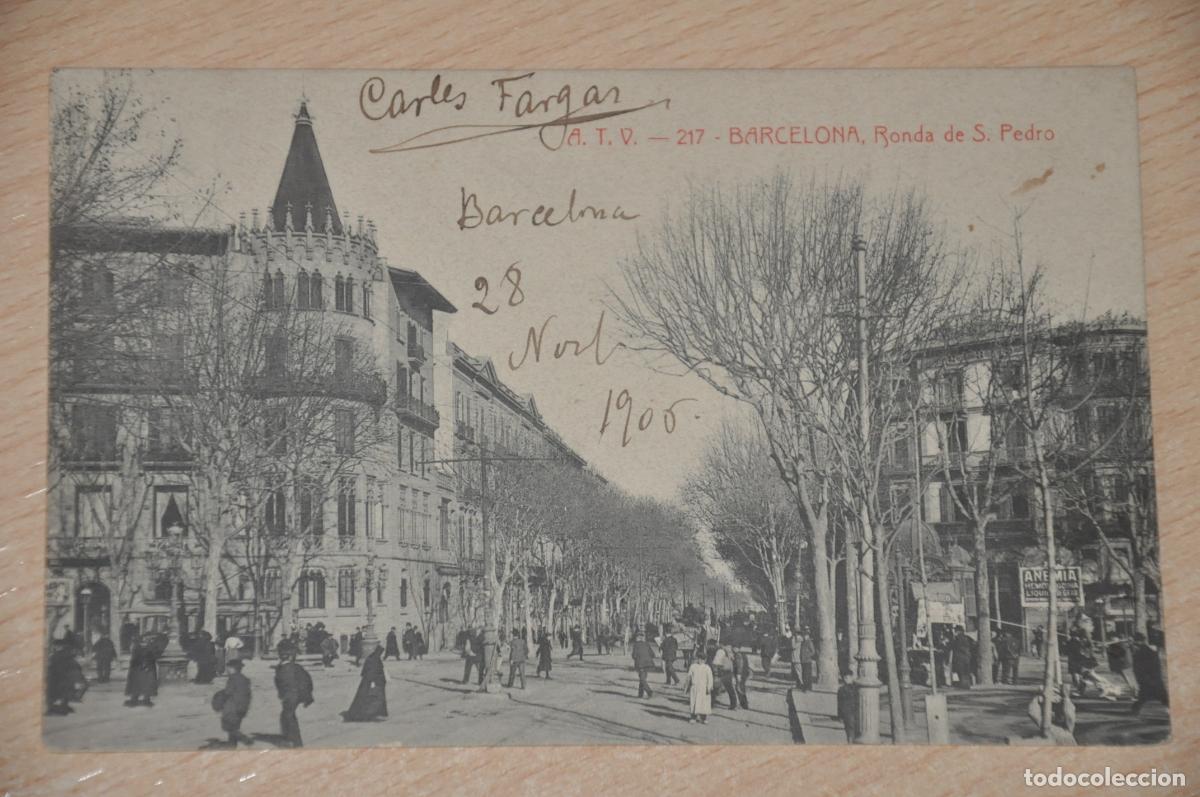 Carles Fargas
A. T. V. — 217 - BARCELONA, Ronda de S. Pedro
Barcelona
28
Novl
1906.
ANEMIA
todocoleccion